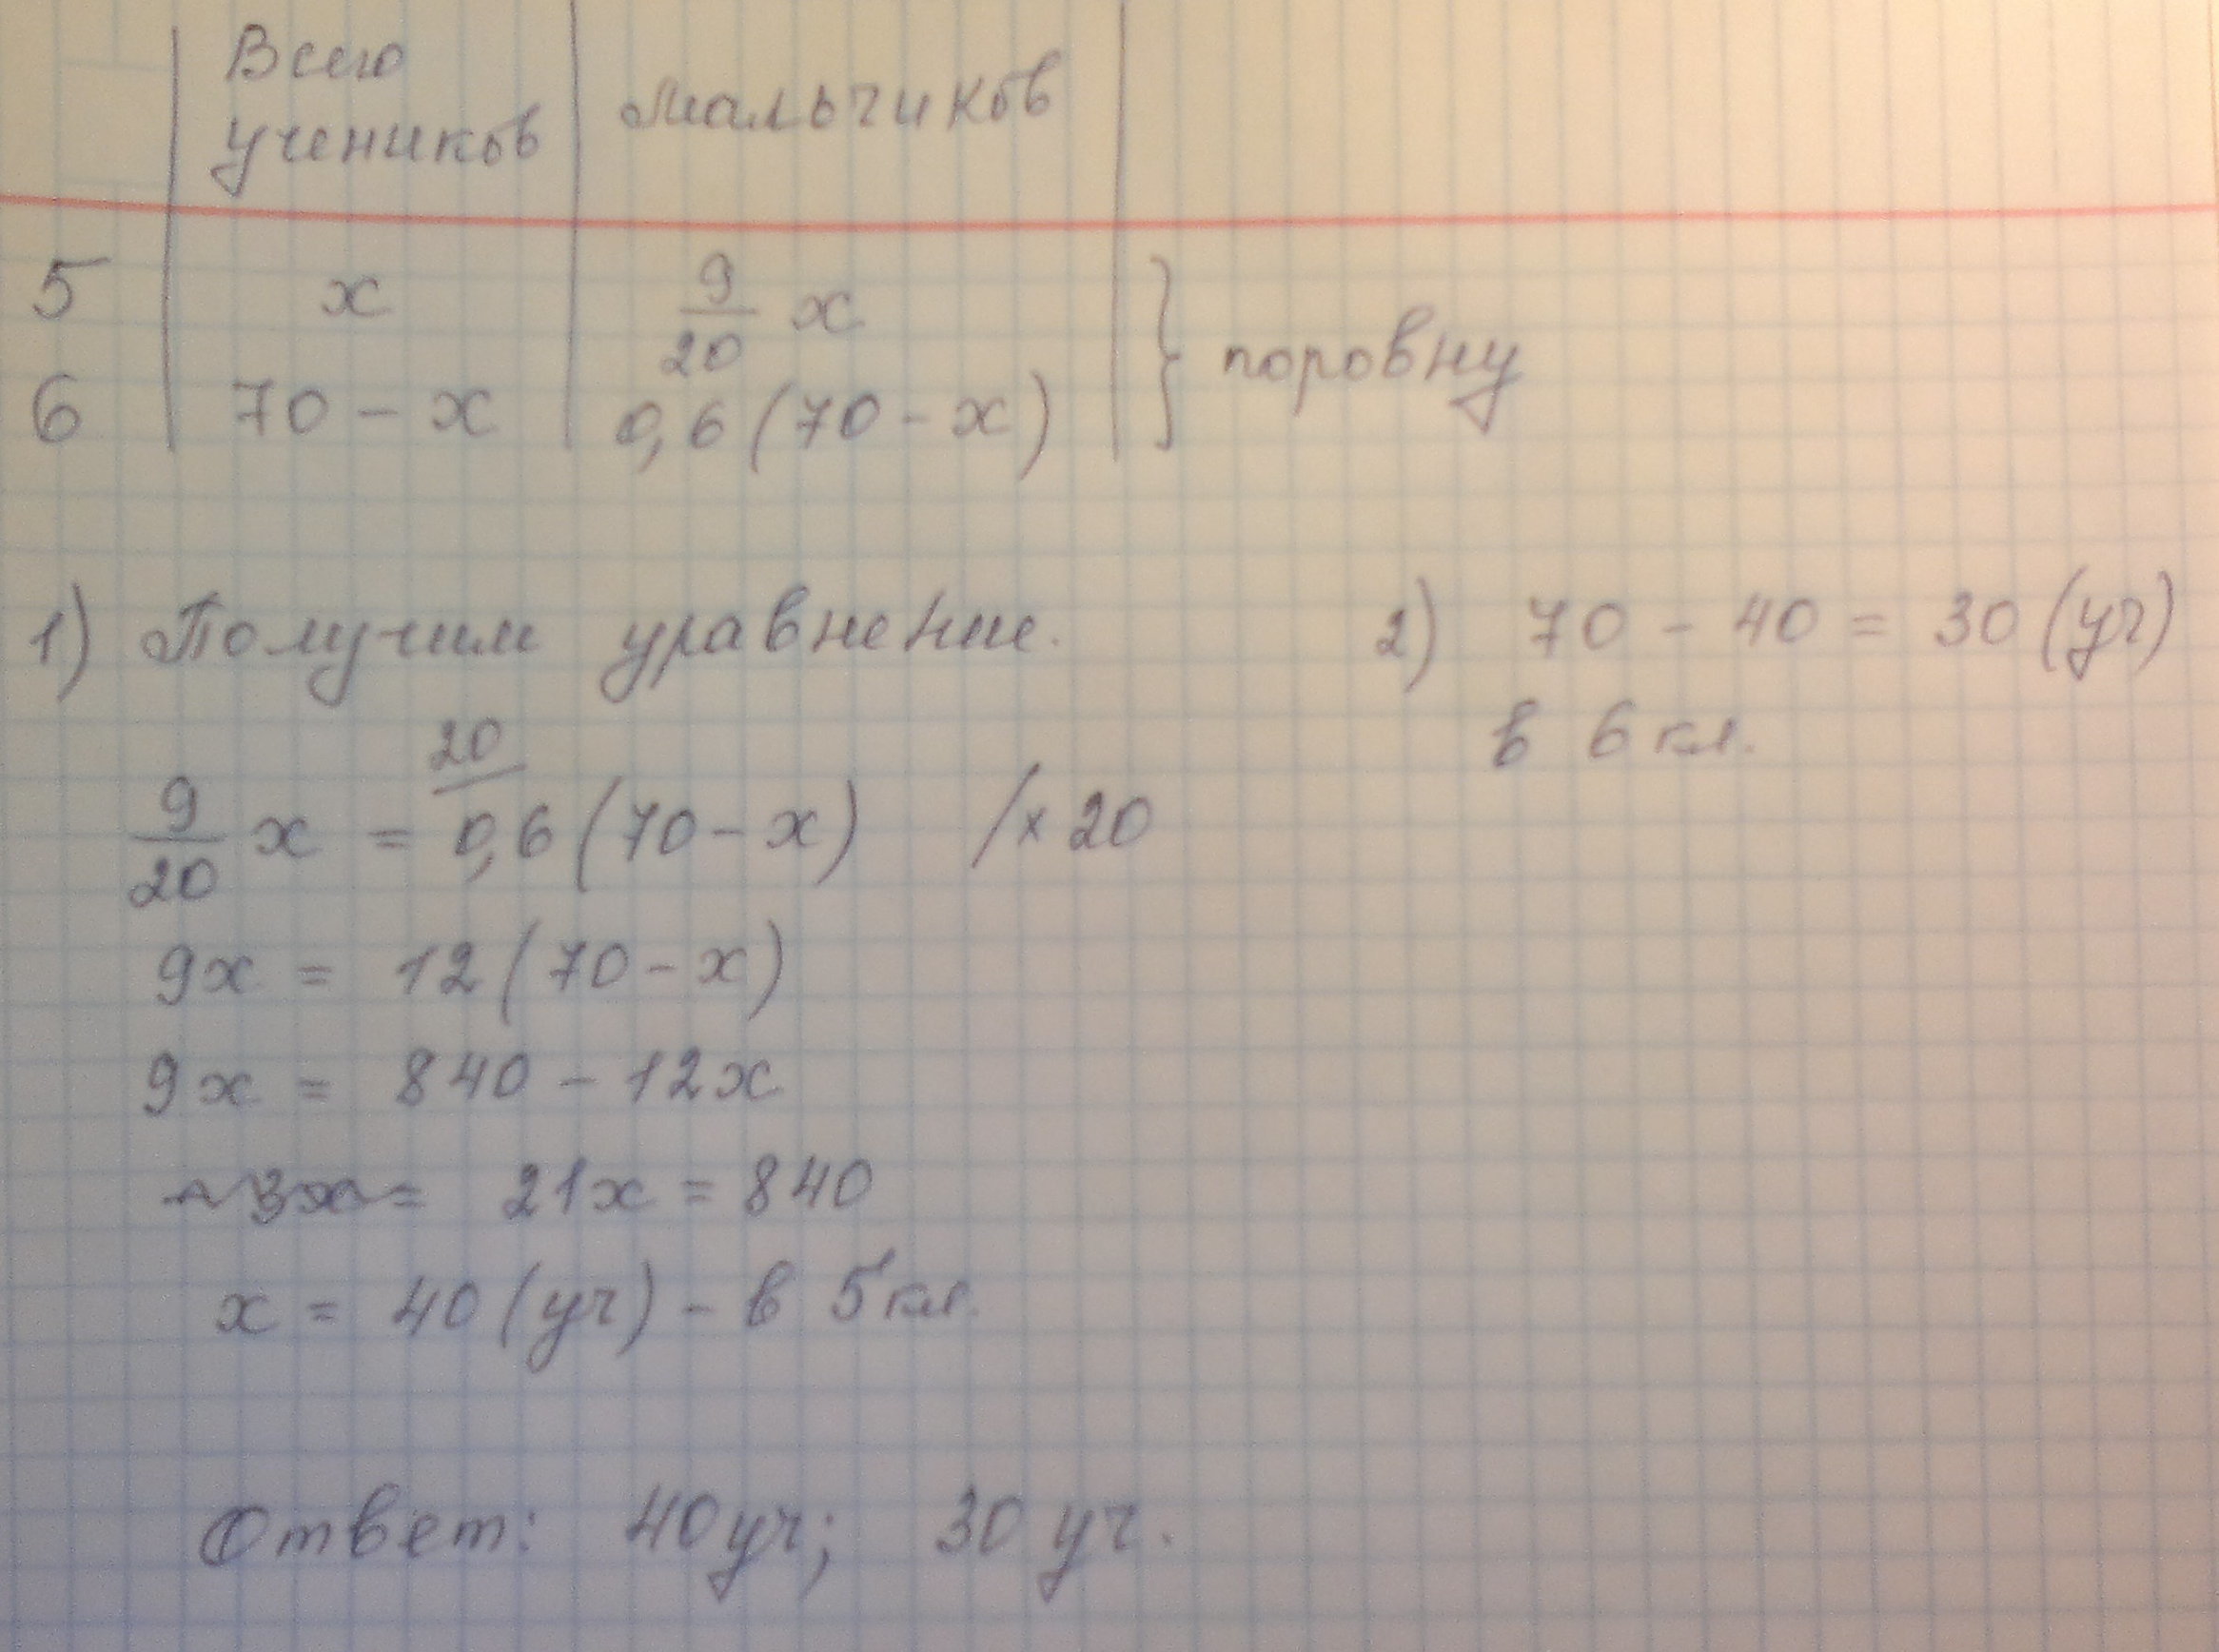 Всего учеников мальчиков
5 x 9/20 x
6 70 - x 0,6 (70 - x) } поровну
1) Получим уравнение.
20
9/20 x = 0,6 (70 - x) / × 20
9x = 12 (70 - x)
9x = 840 - 12x
21x = 840
x = 40 (уч) - в 5 кл.
2) 70 - 40 = 30 (уч)
в 6 кл.
Ответ: 40 уч; 30 уч.